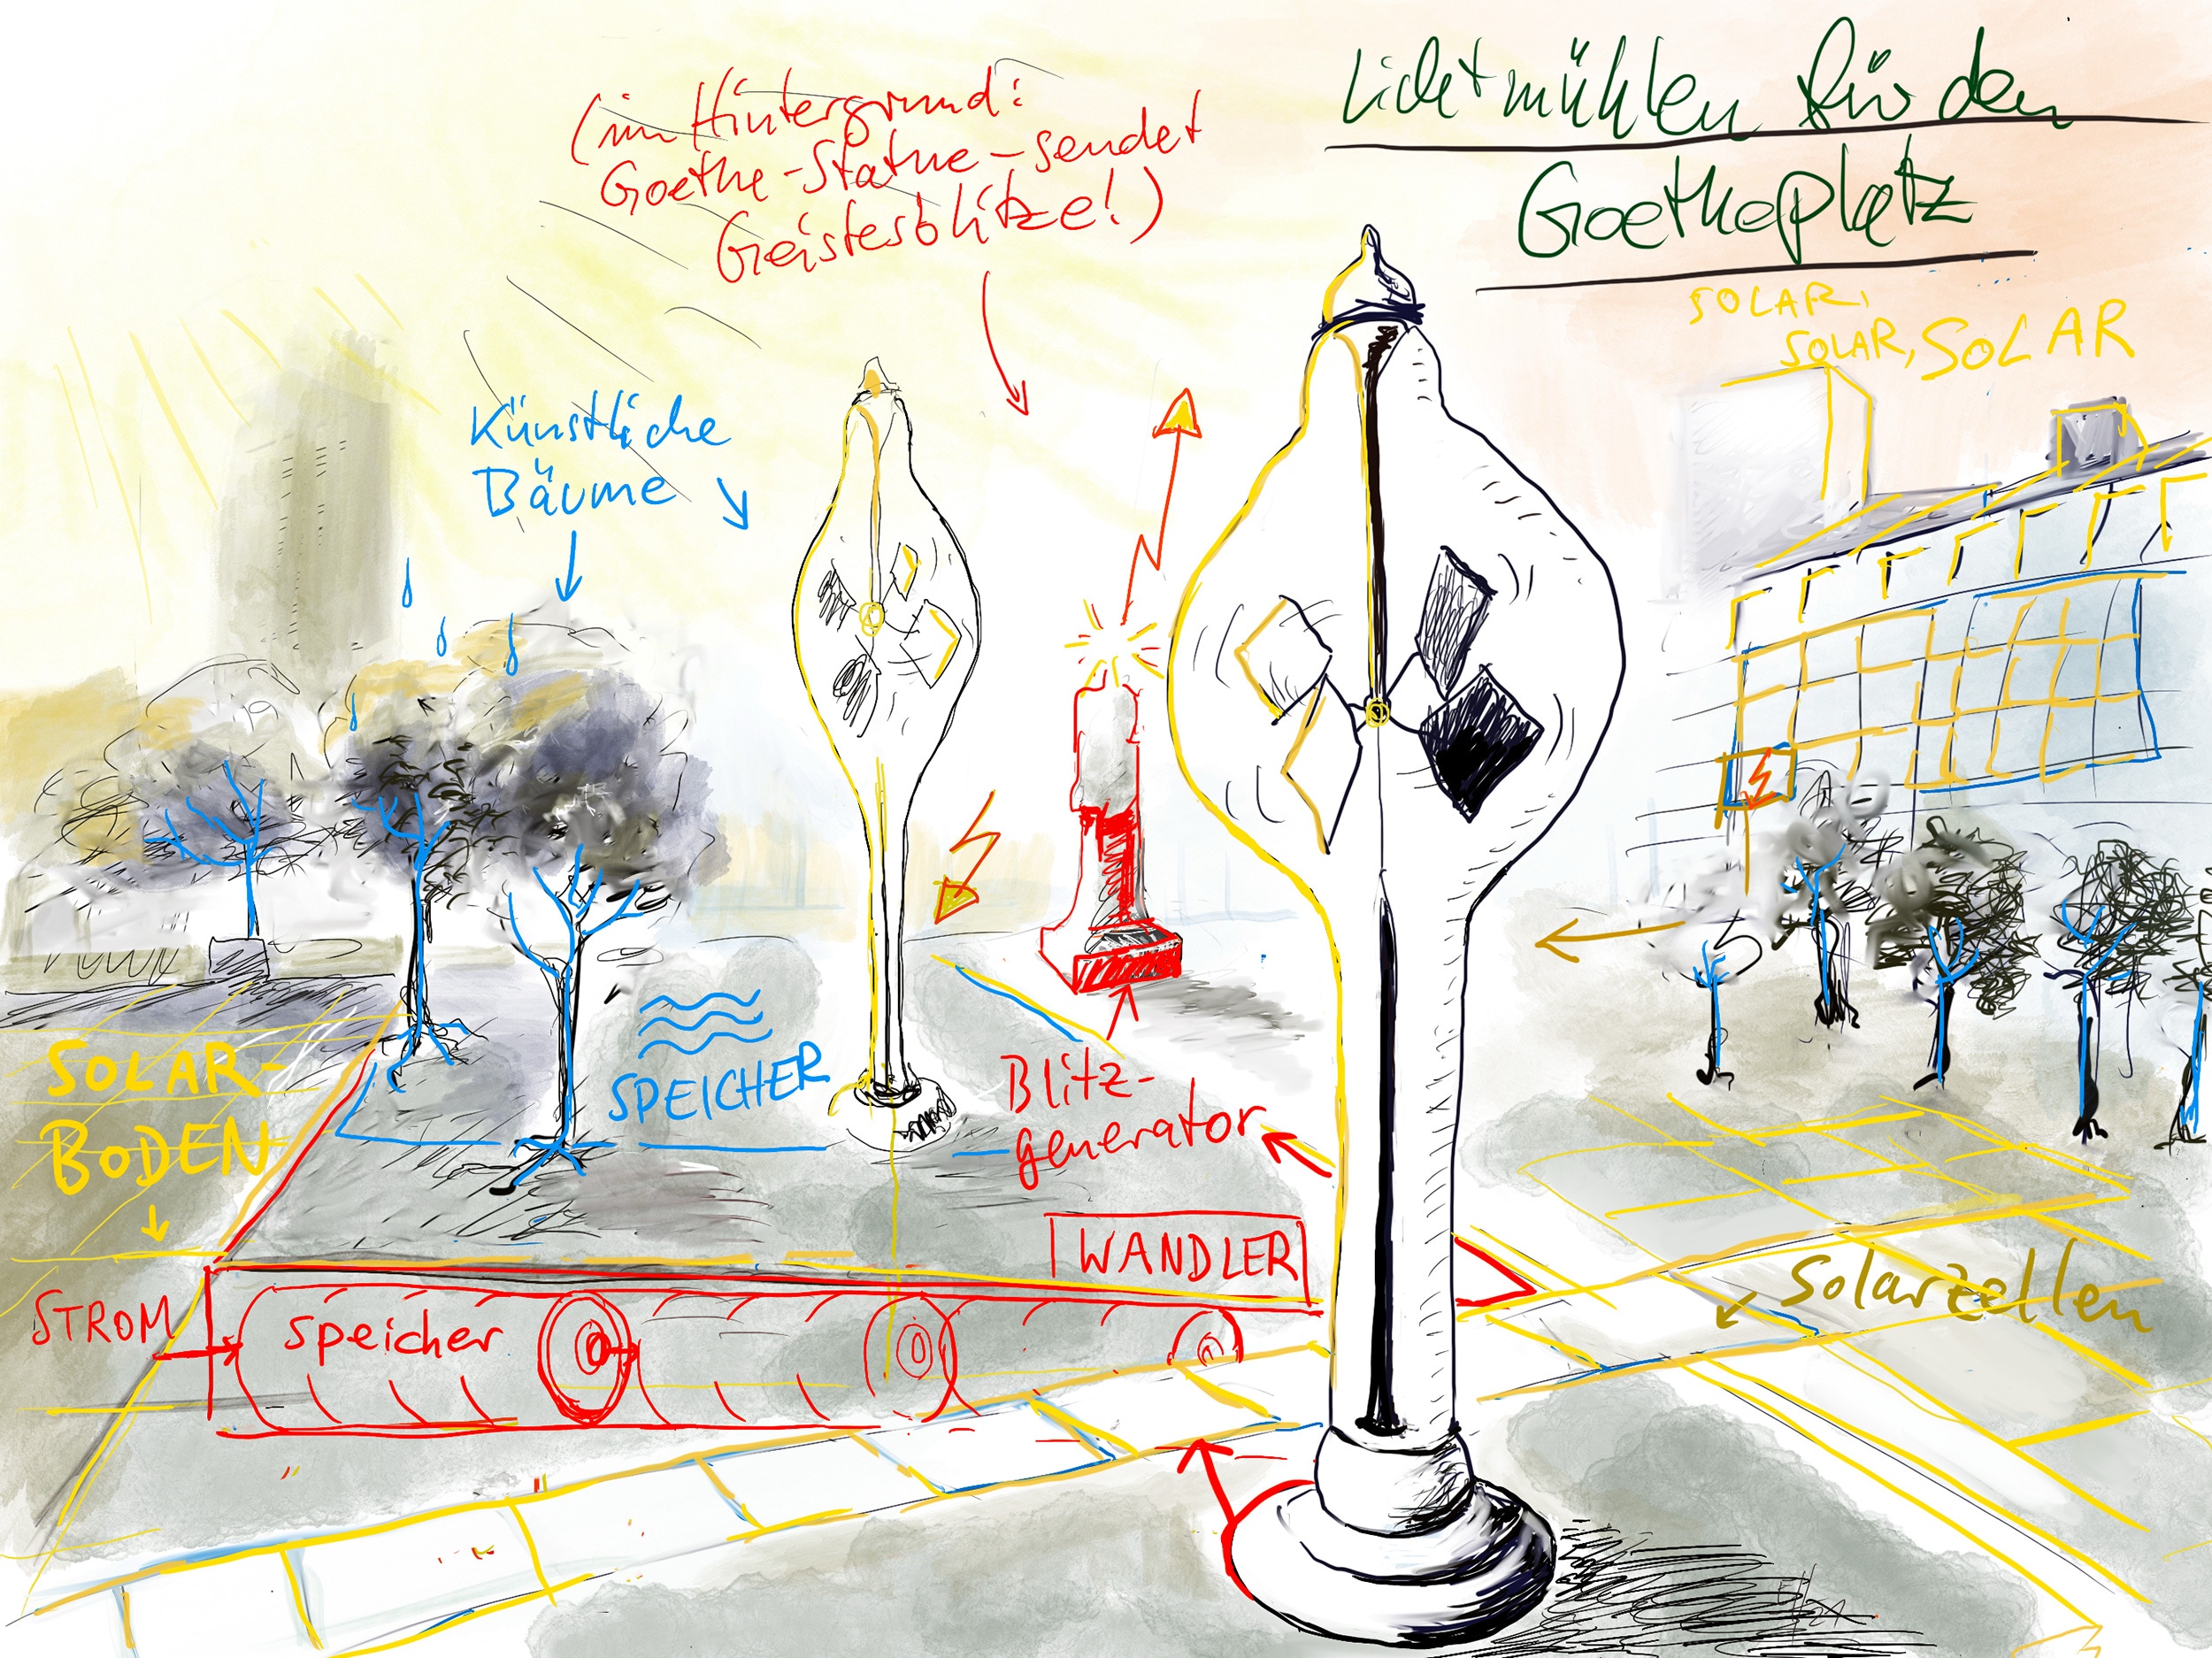 Lichtmühlen für den
Goetheplatz
(im Hintergrund:
Goethe-Statue - sendet
Geistesblitze!)
SOLAR,
SOLAR, SOLAR
Künstliche
Bäume
SPEICHER
SOLAR-
BODEN
Blitz-
generator
WANDLER
STROM
Speicher
Solarzellen